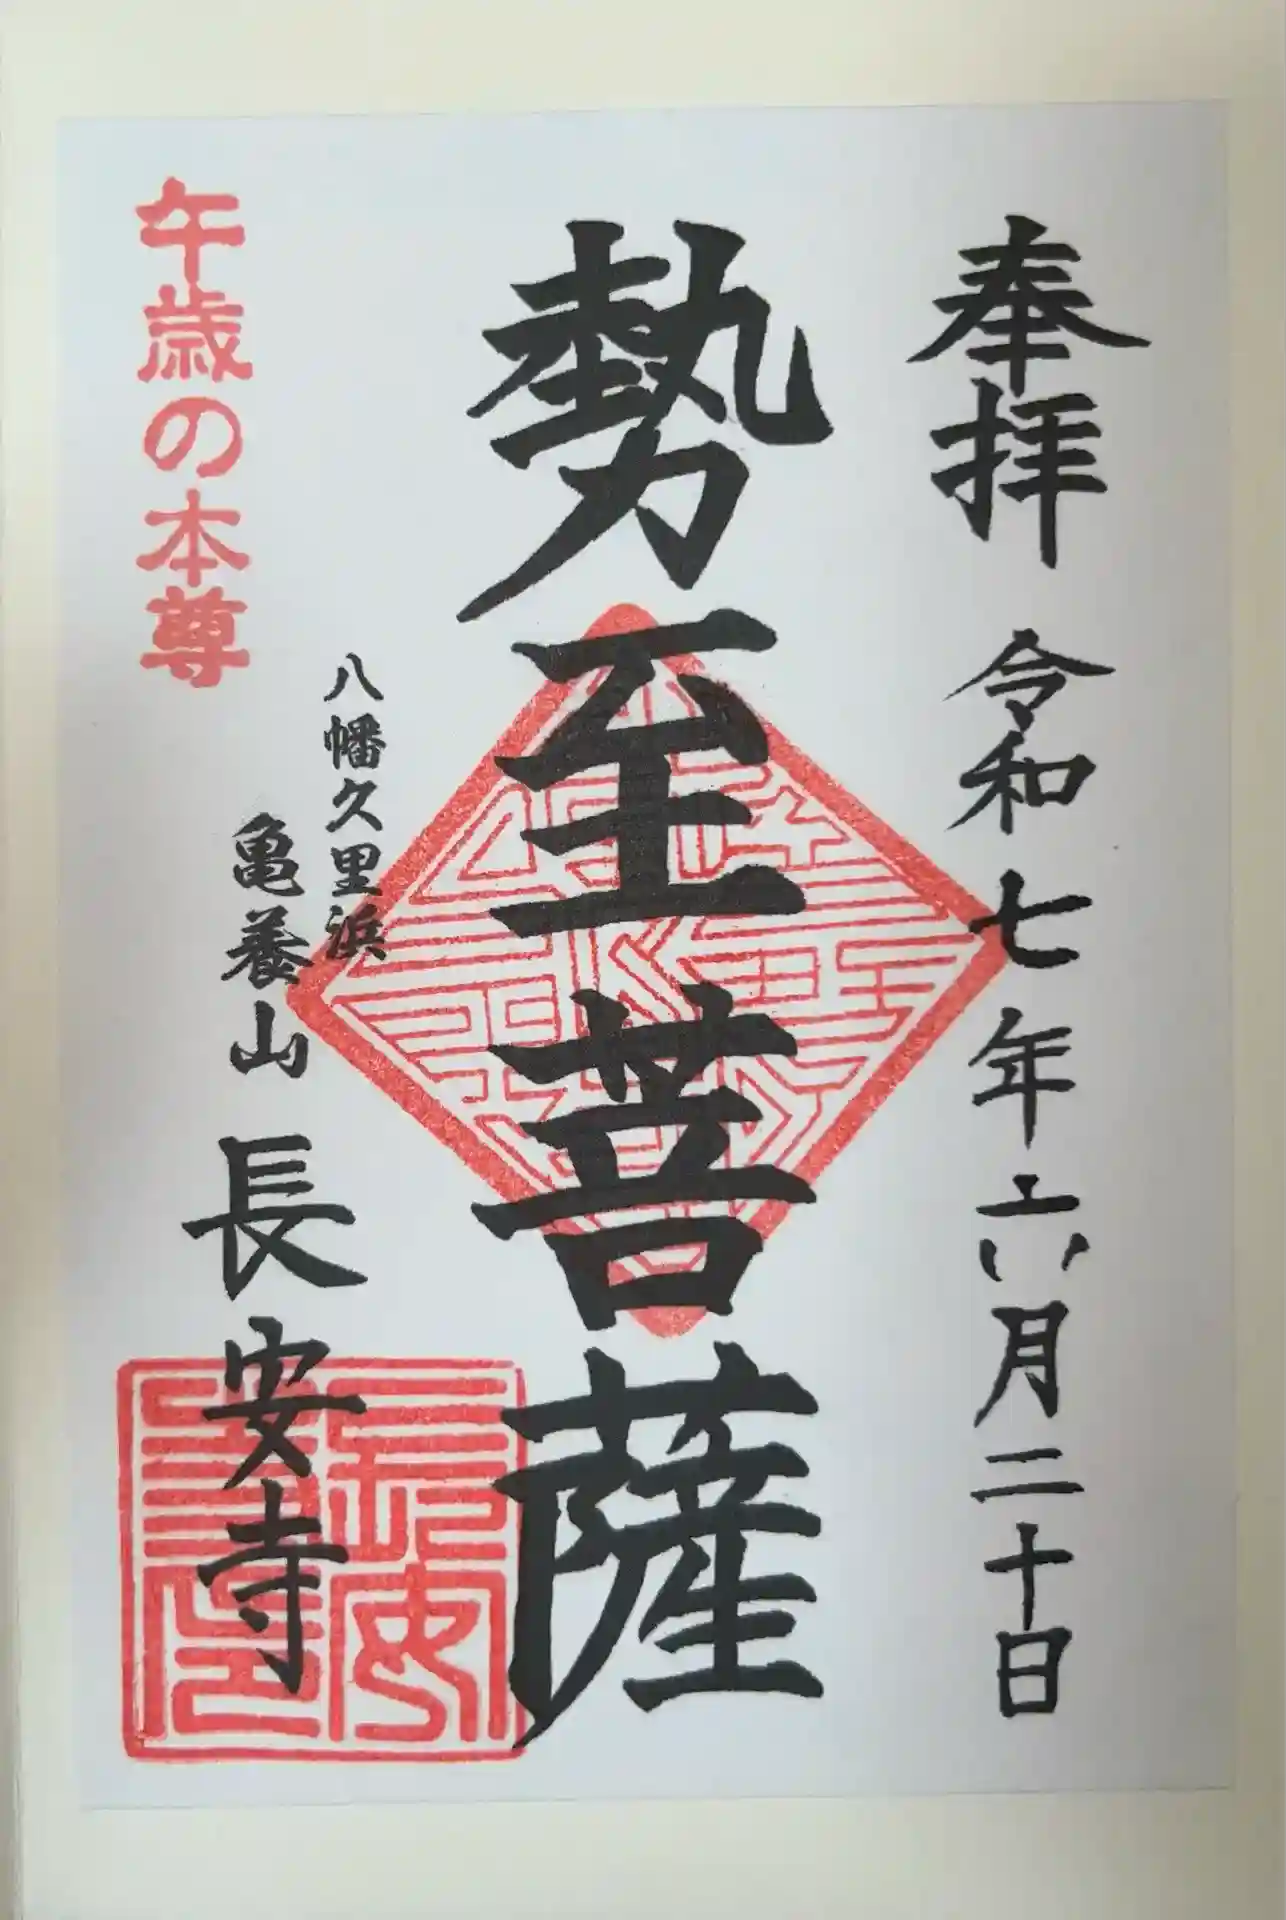 奉拝 令和七年六月二十日
勢至菩薩
八幡久里浜
亀養山 長安寺
午歳の本尊